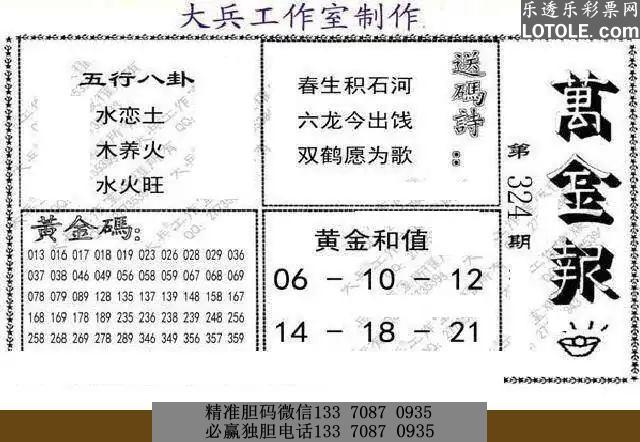 大兵工作室制作
乐透乐彩票网
LOTOLE.COM
五行八卦
水恋土
木养火
水火旺
春生积石河
六龙今出饯
双鹤愿为歌
送碼詩：
萬金報
第324期
黃金碼：
013 016 017 018 019 023 026 028 029 036
037 038 046 049 056 058 059 067 068 069
078 079 089 128 135 137 139 148 158 167
168 169 178 189 235 236 238 239 246 256
258 268 269 279 289 346 349 356 357 359
黄金和值
06 - 10 - 12
14 - 18 - 21
精准胆码微信133 7087 0935
必赢独胆电话133 7087 0935